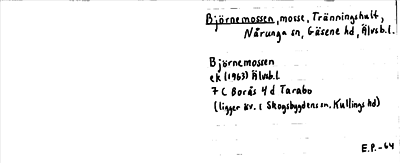 Björnemossen, mosse, Tränningshult,
Nårunga sn, Gäsene hd, Älvsb.l.
Björnemossen
ek (1963) Älvsb.l.
7 C Borås 4 d Tarabo
(ligger äv. i Skogsbygdens sn. Kullings hd)
E.P.-64